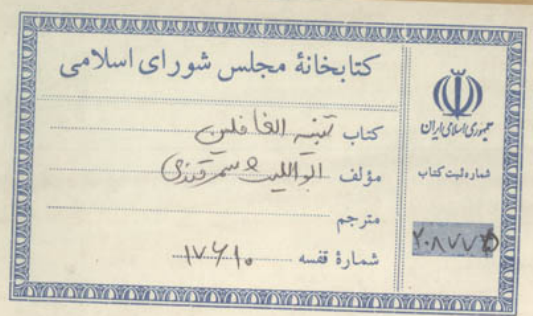 کتابخانهٔ مجلس شورای اسلامی
کتاب تنبیه الغافلین
مؤلف ابواللیث سمرقندی
مترجم
شمارهٔ قفسه ۱۷۶۱۰
جمهوری اسلامی ایران
شماره ثبت کتاب